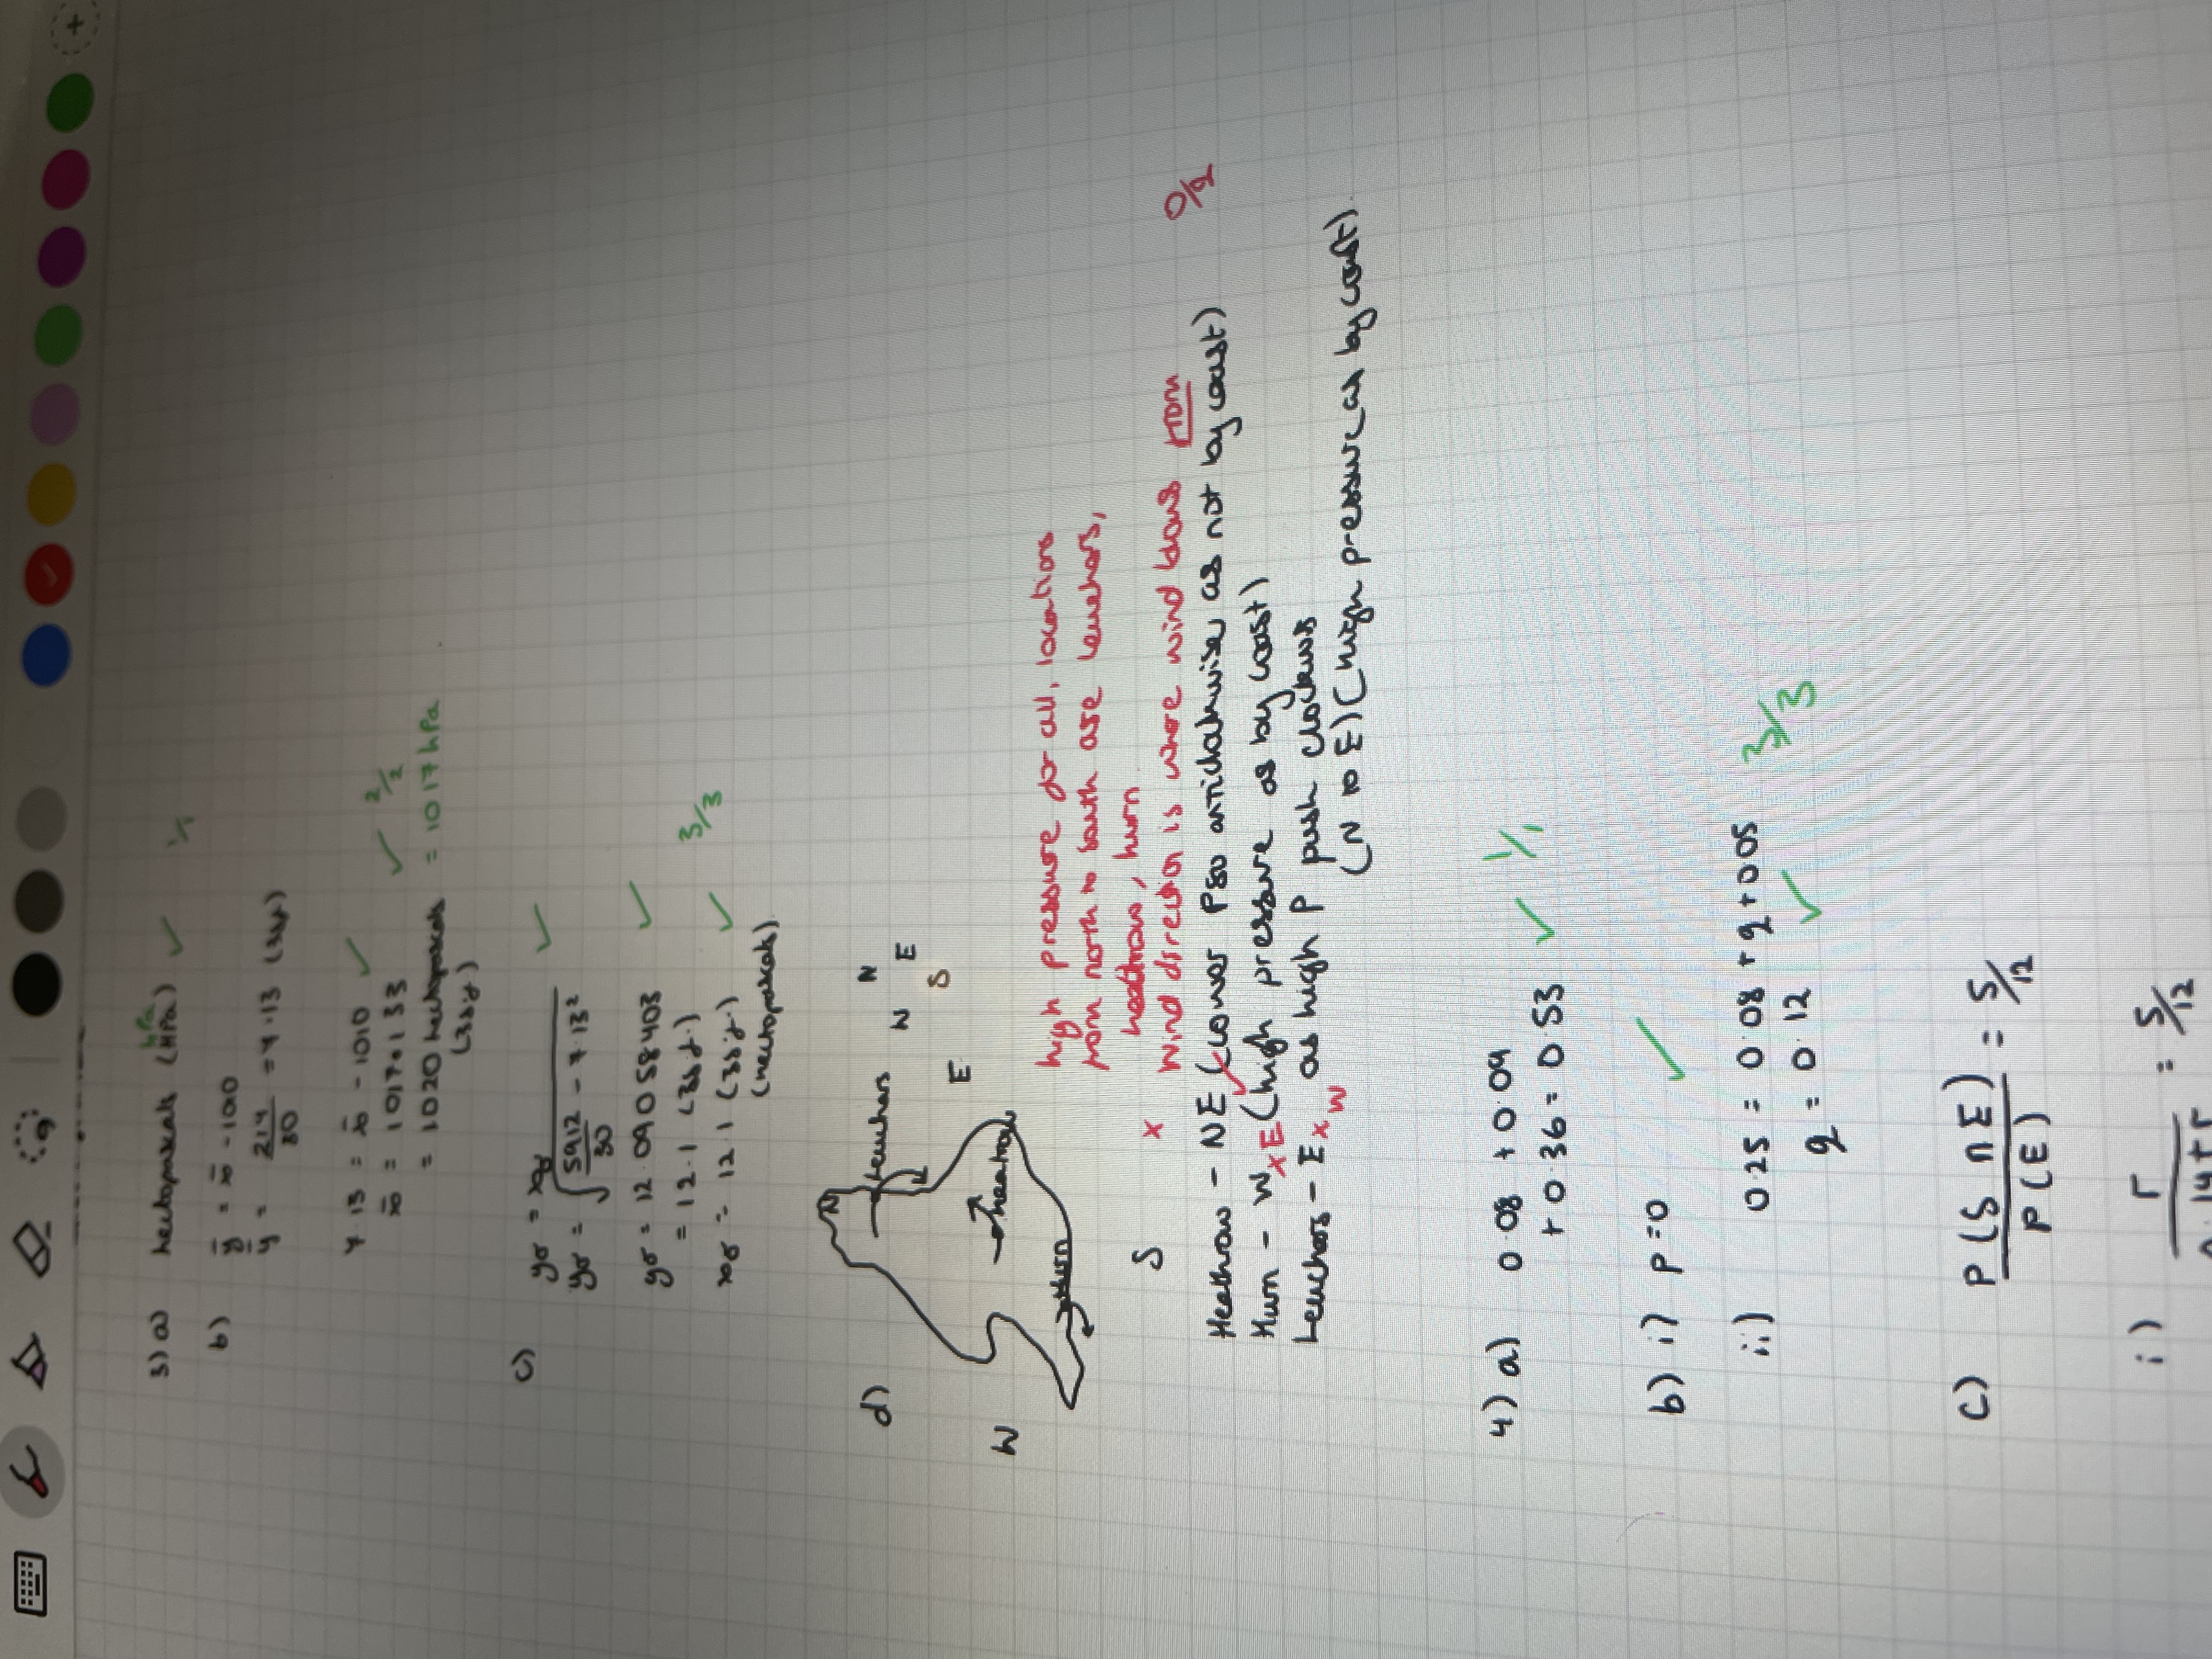 3) a) hectopascals (HPa) ✓ 1/1
hPa
b) ȳ = x̄ - 1010
ȳ = 214/30 = 7.13 (3sf)
7.13 = x̄ - 1010 ✓
x̄ = 1017.133
= 1020 hectopascals = 1017 hPa ✓ 2/2
(3sf)
c) yσ = xσ
yσ = √(5912/30 - 7.13²) ✓
yσ = 12.09058403 ✓
= 12.1 (3sf)
xσ = 12.1 (3sf) ✓ 3/3
(hectopascals)
d) N
Leuchars
N
W E
S
W
E
Heathrow
Hurn
S
high pressure for all, locations
from north to south are leuchars,
heathrow, hurn
x wind direction is where wind blows from 0/2
Heathrow - NE (lower P so anticlockwise as not by coast)
Hurn - W x E (high pressure as by coast)
Leuchars - E x W as high P push clockwise
(N to E) (high pressure as by coast).
4) a) 0.08 + 0.09
+ 0.36 = 0.53 ✓ 1/1
b) i) p = 0 ✓
ii) 0.25 = 0.08 + q + 0.05
q = 0.12 ✓ 3/3
c) P(S ∩ E)/P(E) = 5/12
i) r = 5/12